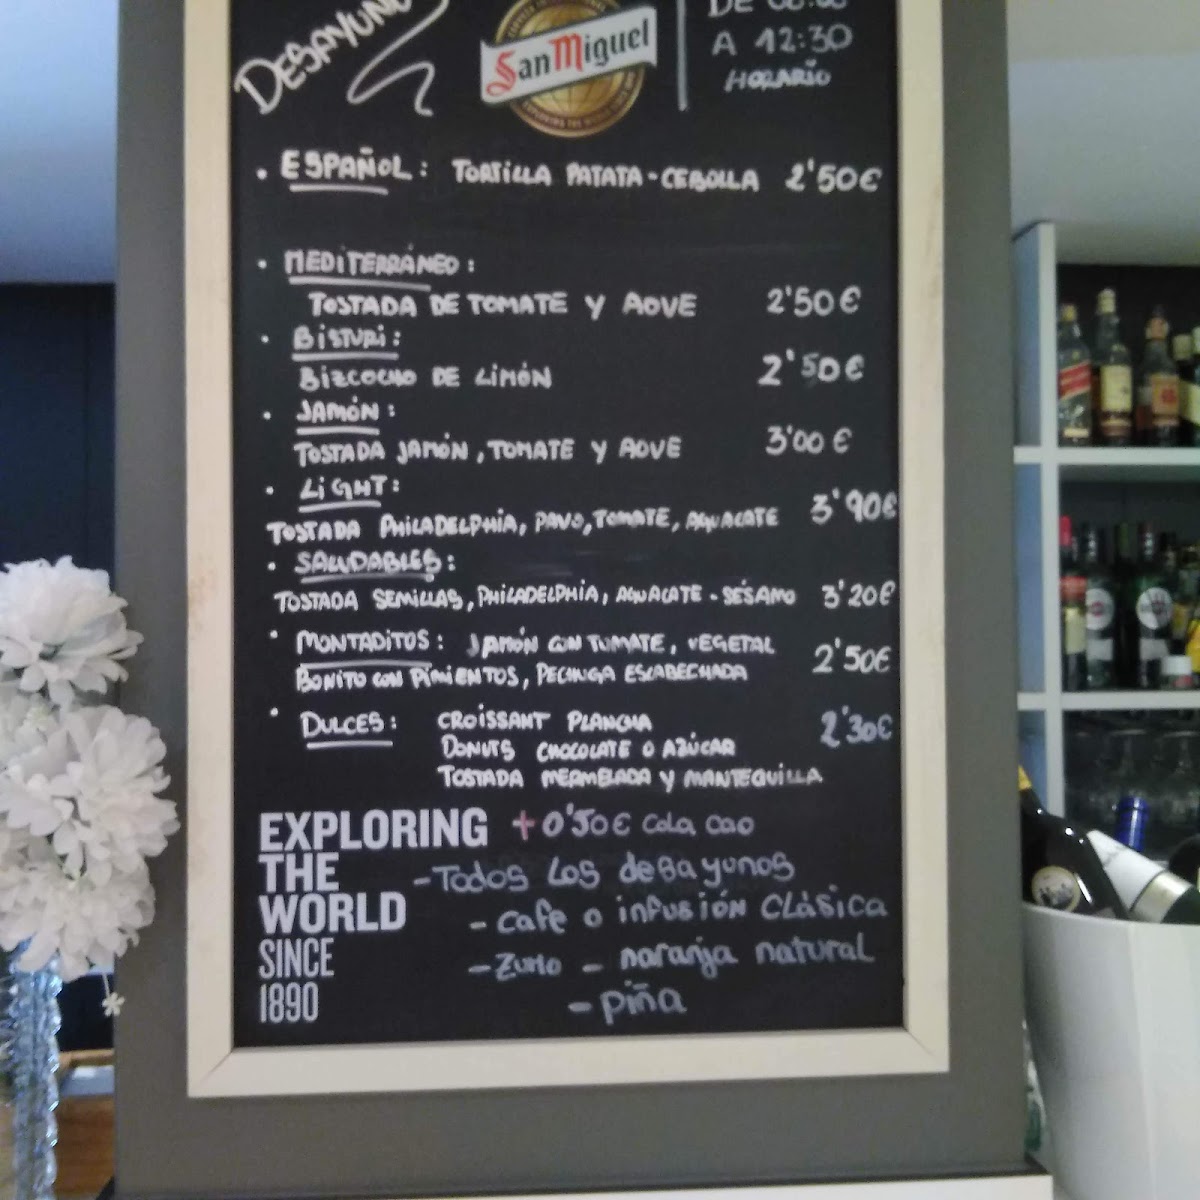 DESAYUNO
San Miguel
DE 08:00
A 12:30
HORARIO
• ESPAÑOL: TORTILLA PATATA-CEBOLLA 2'50€
• MEDITERRÁNEO:
TOSTADA DE TOMATE Y AOVE 2'50€
• BISTURI:
BIZCOCHO DE LIMÓN 2'50€
• JAMÓN:
TOSTADA JAMÓN, TOMATE Y AOVE 3'00€
• LIGHT:
TOSTADA PHILADELPHIA, PAVO, TOMATE, AGUACATE 3'90€
• SALUDABLES:
TOSTADA SEMILLAS, PHILADELPHIA, AGUACATE - SÉSAMO 3'20€
• MONTADITOS: JAMÓN CON TOMATE, VEGETAL
BONITO CON PIMIENTOS, PECHUGA ESCABECHADA 2'50€
• DULCES: CROISSANT PLANCHA 2'30€
DONUTS CHOCOLATE O AZÚCAR
TOSTADA MERMELADA Y MANTEQUILLA
+0'50€ Cola Cao
-Todos los desayunos
- Cafe o infusión Clásica
- Zumo - naranja natural
- piña
EXPLORING
THE
WORLD
SINCE
1890